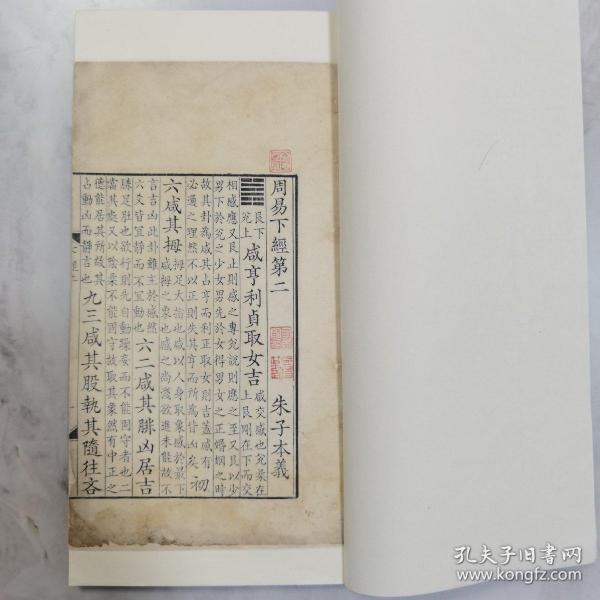 周易下經第二 朱子本義
艮下兌上 咸亨利貞取女吉 咸交感也兌柔在上艮剛在下而交
相感應又艮止則感之專兌說則應之至又艮以少
男下於兌之少女男先於女得男女之正婚姻之時
故其卦為咸其占亨而利正取女則吉蓋感有
必通之理然不以正則失其亨而所為皆凶矣 初
六咸其拇 拇足大指也咸以人身取象感於最下
咸拇之象也感之尚淺欲進未能故不
言吉凶此卦雖主於感然
六爻皆宜靜而不宜動也 六二咸其腓凶居吉
腓足肚也欲行則先自動躁妄而不能固守者也二
當其處又以陰柔不能固守故取其象然有中正之
德能居其所故其
占動凶而靜吉也 九三咸其股執其隨往吝
孔夫子旧书网
www.kongfz.com